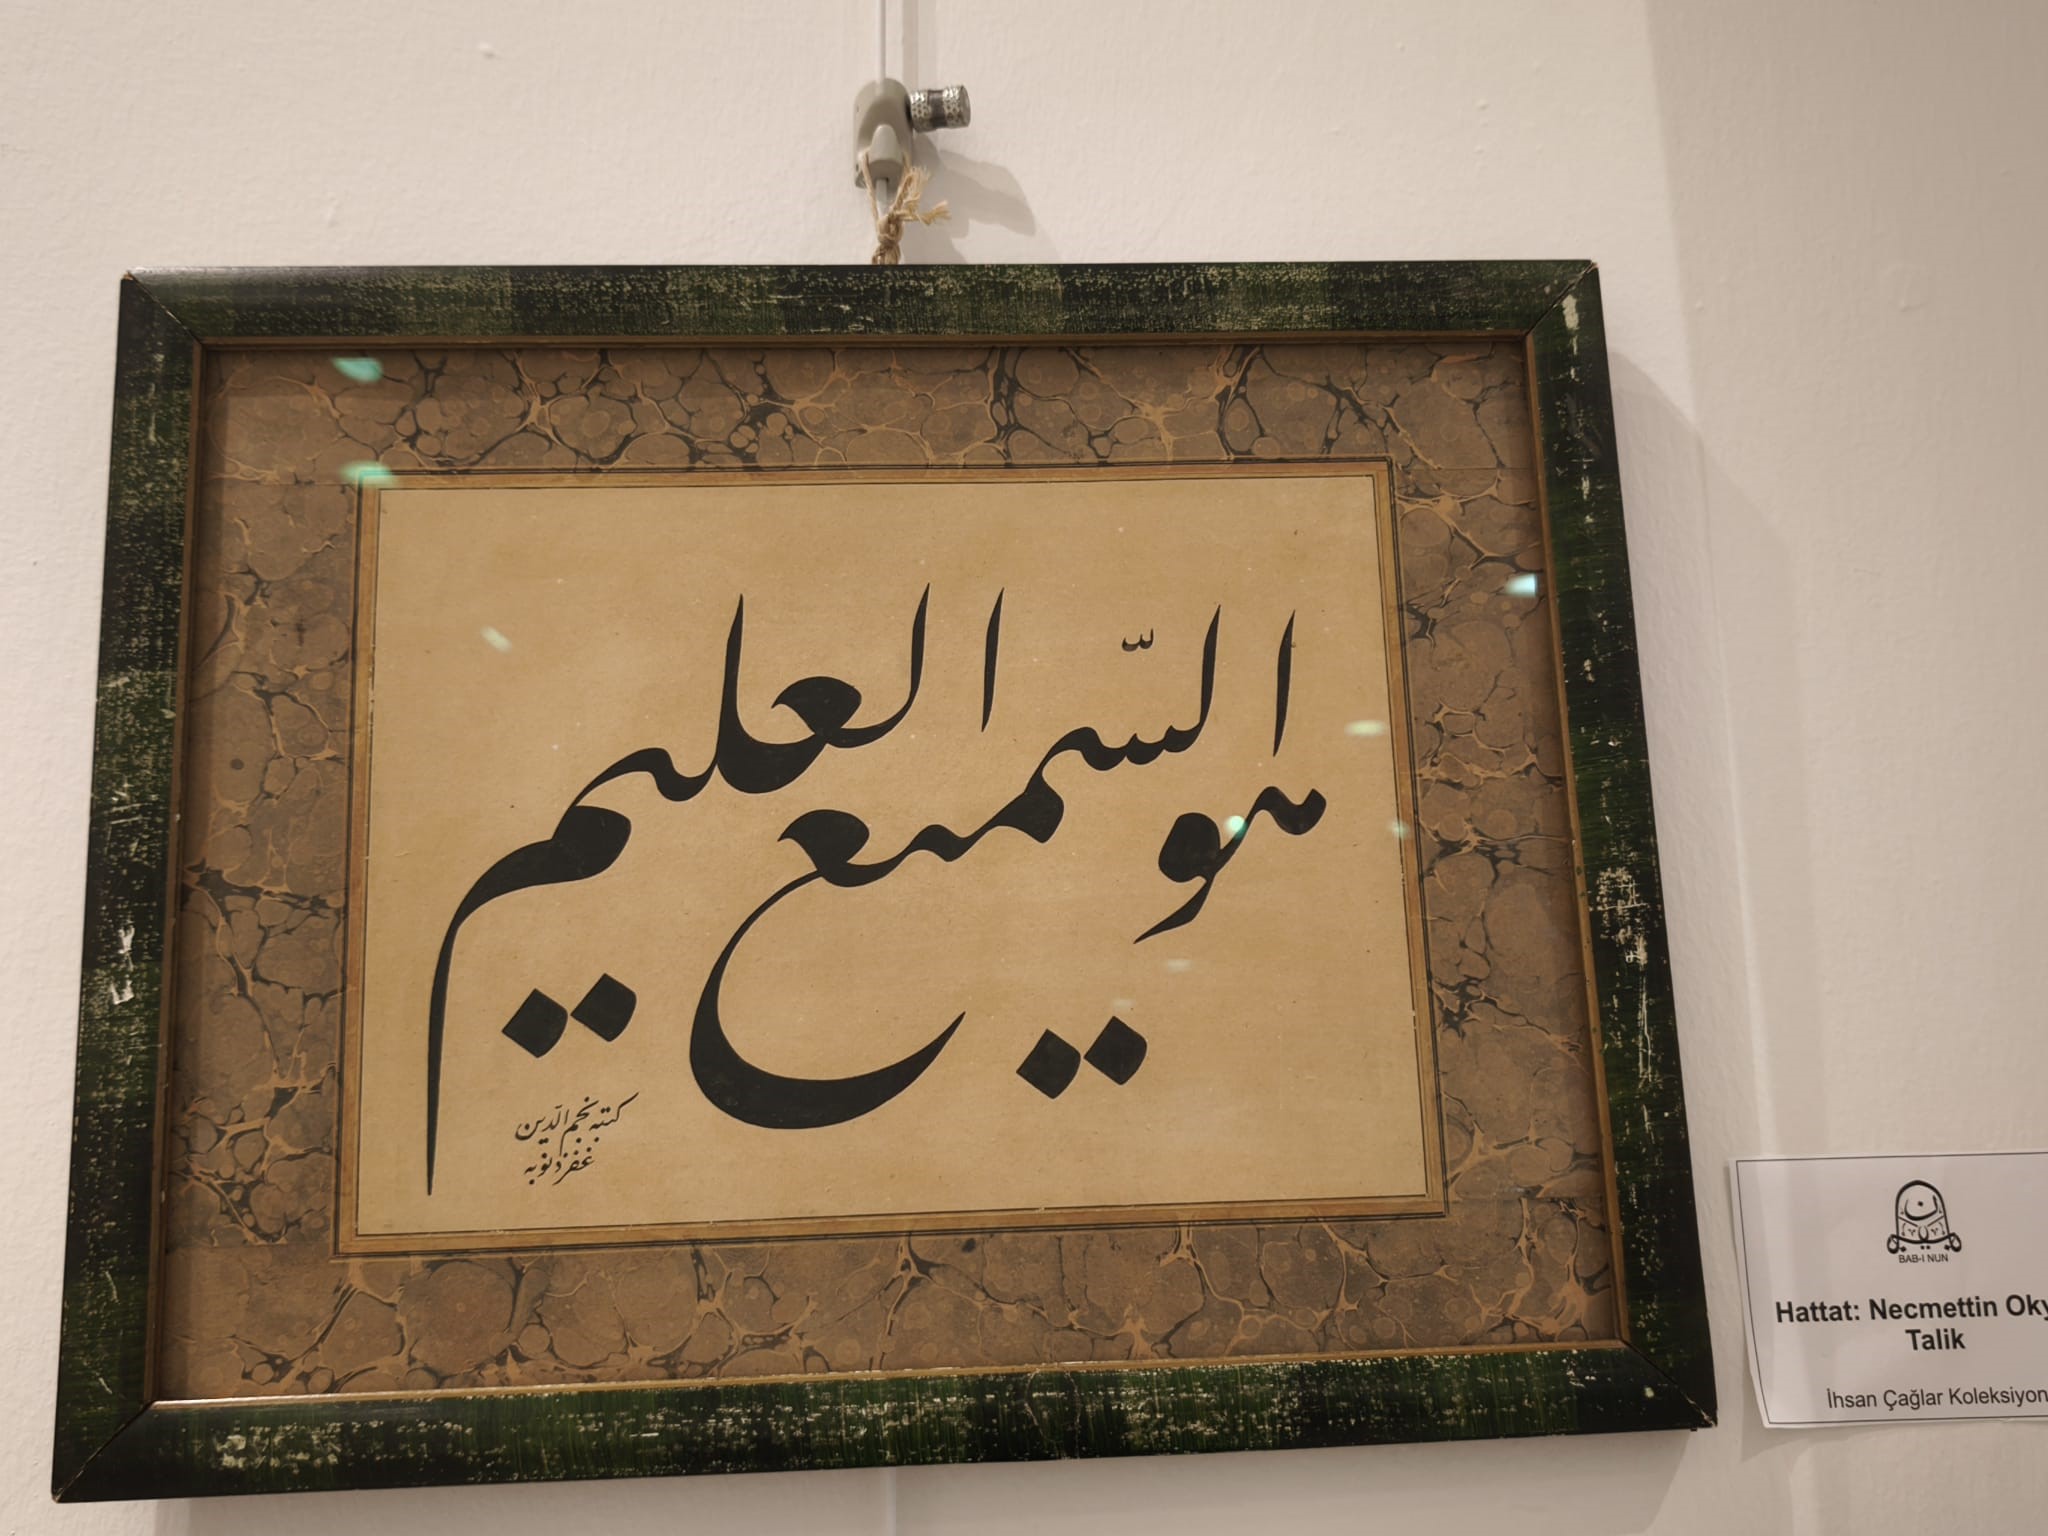 هو السّميع العليم
كتبه نجم الدّين
غفر ذنوبه
BAB-I NUN
Hattat: Necmettin Oky
Talik
İhsan Çağlar Koleksiyon